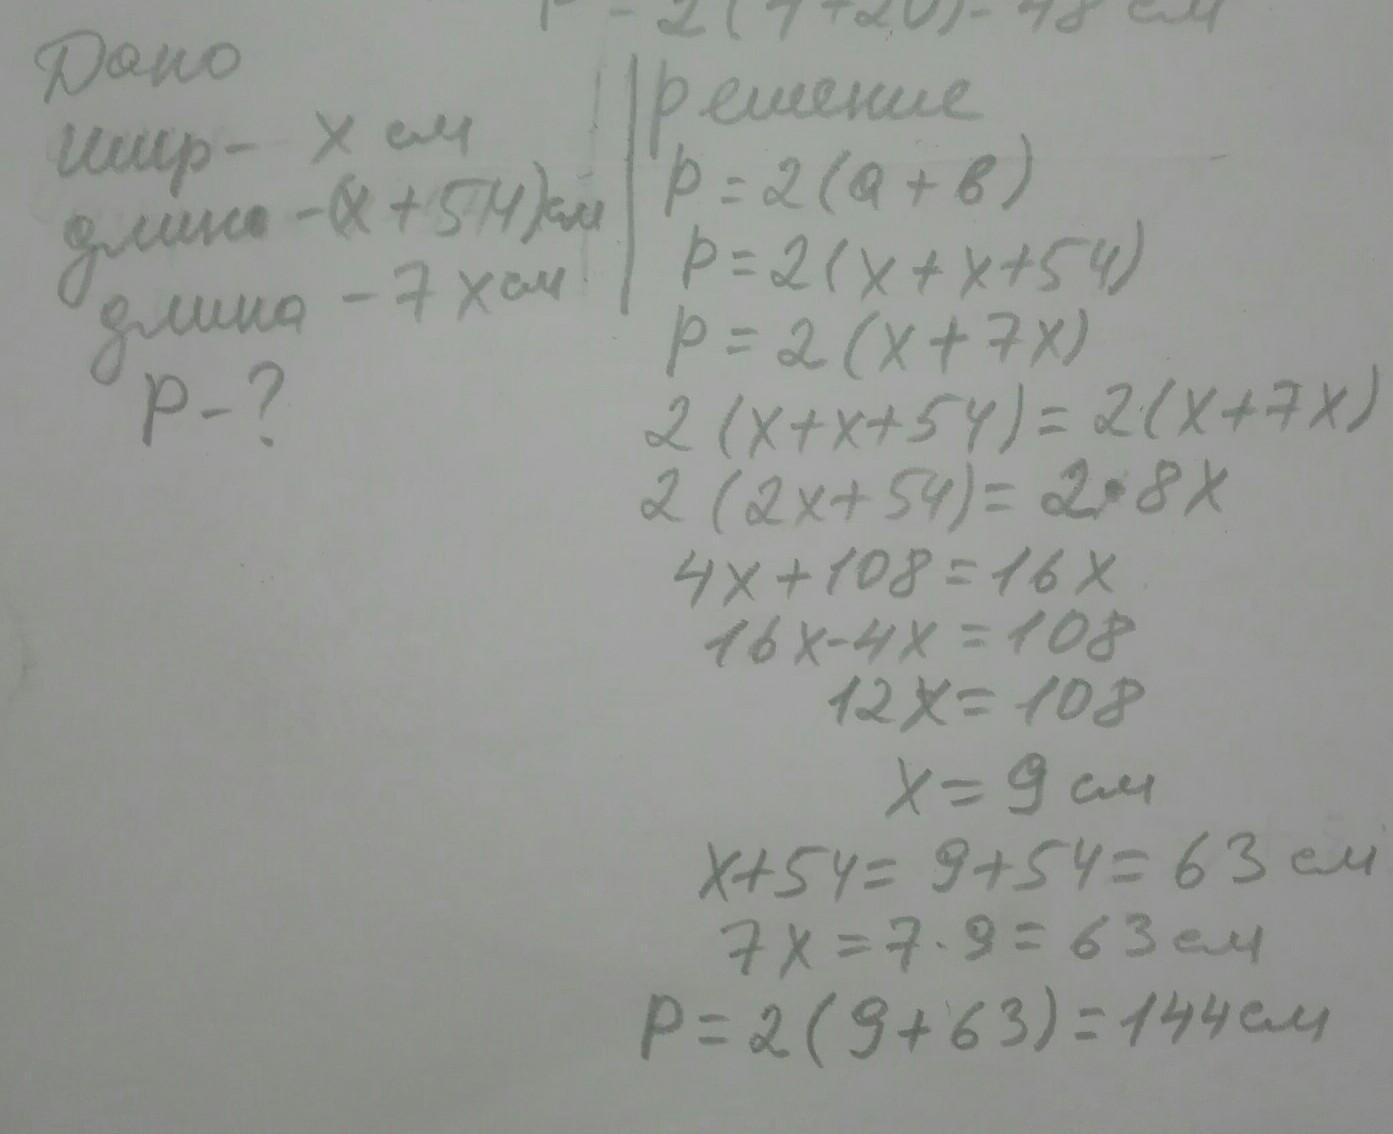 = 2(4+20)= 48 см
Дано
шир - x см
длина -(x + 54)см
длина - 7 x см
P - ?
Решение
P = 2(a + в)
P = 2(x + x + 54)
P = 2(x + 7x)
2(x+x+54) = 2(x+7x)
2(2x+54) = 2•8x
4x+108 = 16x
16x-4x = 108
12x = 108
x = 9 см
x+54 = 9+54 = 63 см
7x = 7·9 = 63 см
P = 2(9+63) = 144 см